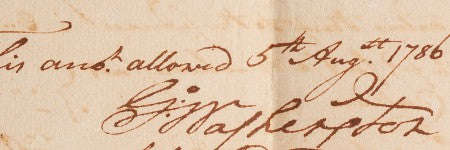 his acct. allowed 5th Augst. 1786
Go: Washington